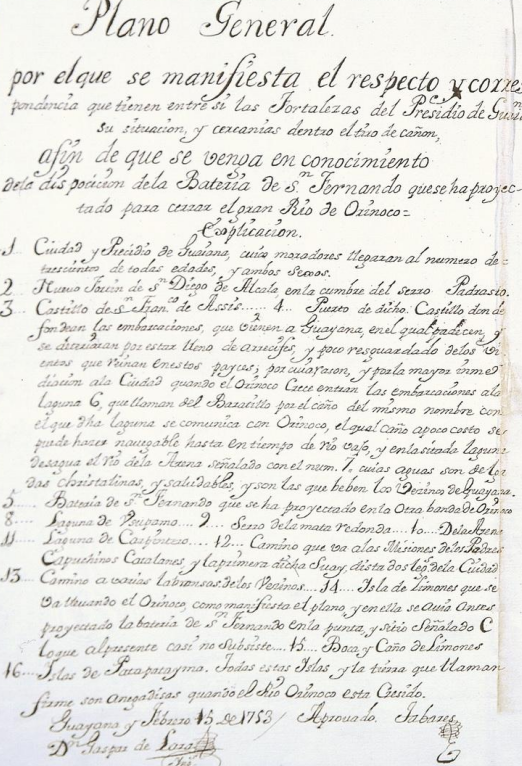 Plano General.
por el que se manifiesta el respecto y corres
pondencia que tienen entre si las Fortalezas del Presidio de
su situacion, y cercanias dentro el tiro de cañon,
afin de que se venga en conocimiento
dela disposicion dela Bateria de S.n Fernando quese ha proyec-
tado para cerrar el gran Rio de Orinoco=
Explicacion.
1... Ciudad y Precidio de Guaiana, cuios moradores llegaran al numero de
trescientos de todas edades, y ambos sexos.
2.. Nuevo Fortin de S.n Diego de Alcala enla cumbre del serro Padrasto.
3... Castillo de S.n Fran.co de Assis..... 4.. Puerto de dicho Castillo donde
fondean las embarcaciones, que vienen a Guayana, en el qual padecen, y
se deterioran por estar lleno de arrecifes, y poco resguardado delos vi
entos que reinan enestos payces, por cuia razon, y porla mayor inme
diacion ala Ciudad quando el Orinoco Crece entran las embarcaciones ala
laguna 6, que llaman del Baratillo por el caño del mismo nombre con
el que dha laguna se comunica con Orinoco, el qual caño apoco costo se
puede hazer navegable hasta en tiempo de rio vajo, y enla sitada laguna
desagua el Rio dela Arena señalado con el num. 7, cuias aguas son de to
das christalinas, y saludables, y son las que beben los Vezinos de Guayana.
5..... Bateria de S.n Fernando que se ha proyectado en la Otra banda de Orinoco
8.... Laguna de Vsupamo... 9.. Serro dela mata redonda.... 10.. Dela Arena
11.... Laguna de Carpintero.... 12.. Camino que va alas Misiones delos Padres
Capuchinos Catalanes, y la primera dicha Suay, dista dos leg.s dela Ciudad
13... Camino a varias labransas delos Vezinos... 14.. Isla de Limones que se
va llevando el Orinoco, como manifiesta el plano, y en ella se avia Antes
proyectado la bateria de S.n Fernando enla punta, y sitio Señalado C
loque alpresente casi no Subsiste.... 15.. Boca, y Caño de Limones
16... Islas de Patapatayma. Todas estas Islas, y la tierra que llaman
firme son anegadisas quando el Rio Orinoco esta Cresido.
Guayana y Febrero 15 de 1753/ Aprovado. Tabares
D.n Gaspar de Lara